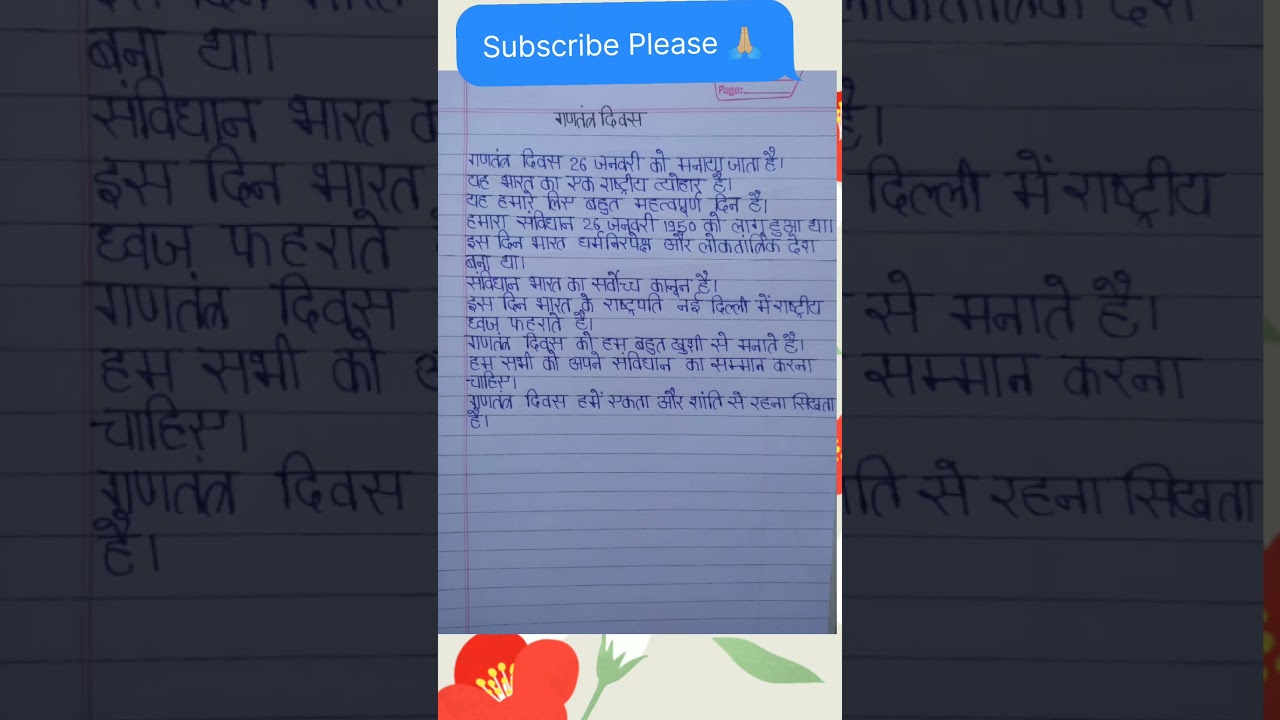 Subscribe Please 🙏🏼
Page:
गणतंत्र दिवस
गणतंत्र दिवस 26 जनवरी को मनाया जाता है।
यह भारत का एक राष्ट्रीय त्योहार है।
यह हमारे लिए बहुत महत्वपूर्ण दिन है।
हमारा संविधान 26 जनवरी 1950 को लागू हुआ था।
इस दिन भारत धर्मनिरपेक्ष और लोकतांत्रिक देश
बना था।
संविधान भारत का सर्वोच्च कानून है।
इस दिन भारत के राष्ट्रपति नई दिल्ली में राष्ट्रीय
ध्वज फहराते है।
गणतंत्र दिवस को हम बहुत खुशी से मनाते है।
हम सभी को अपने संविधान का सम्मान करना
चाहिए।
गणतंत्र दिवस हमें एकता और शांति से रहना सिखता
है।